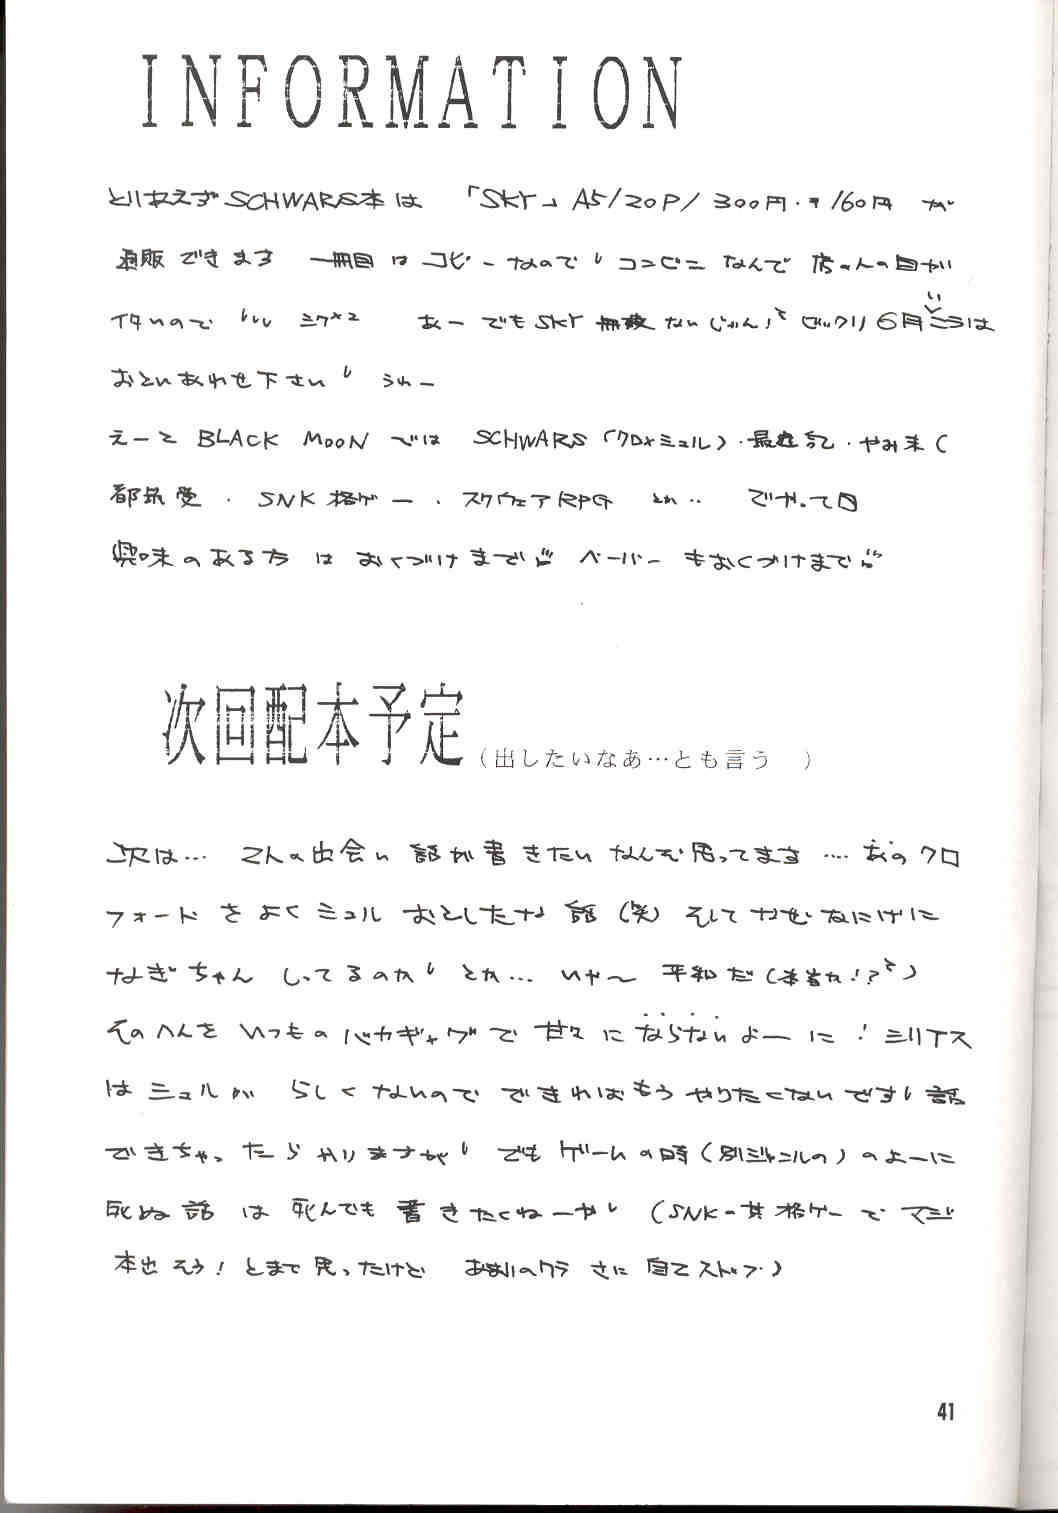 INFORMATION
とりあえずSCHWARS本は 「SKY」A5/20P/300円・〒160円 が
通販できます 一冊目はコピーなので コンビニなんで 店さんの目が
イタいので ミクxx あー でもSKY 無ないじゃん! ビックリ6月いこうは
おといあわせ下さい うわー
えーと BLACK MOON では SCHWARS(クロ×ミュル)・最遊記・やみ末(
都筑受・SNK格ゲー・スクウェアRPG とか‥ でやって
興味のある方 は おくづけまで ペーパー もおくづけまで
次回配本予定(出したいなあ…とも言う )
次は… 2人の出会い 話が書きたい なんぞ思ってます …. あのクロ
フォード をよくミュル おとしたな 話(笑) そして なにげに
なぎちゃん しってるのか とか… いや〜 平和だ(本当か!?)
そのへんを いつものバカギャグで 甘々に ならないよーに! シリアス
はミュルが らしくないので できればもう やりたくないです 話
できちゃったらやりますがね でもゲームの時(別ジャンルの)のよーに
死ぬ話 は 死んでも書きたくねーや (SNKの某格ゲーで マジ
本出そう!とまで思ったけど あまりのクラさに自てストップ)
41